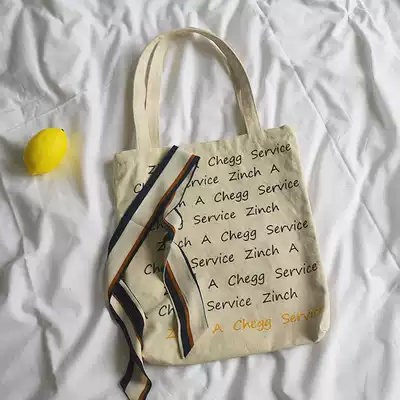 Zinch A Chegg Service
Service Zinch A
A Chegg Service
Service Zinch
A Chegg Service
Service Zinch A
A Chegg Service
Service Zinch
A Chegg Service